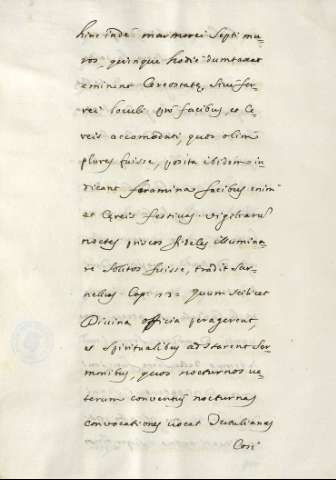 hinc inde marmorei Septi mu-
ros, quinque hodie dumtaxat
eminent Cereostatę, sive fer-
rei loculi pro facibus, et Ce-
reis accomodati, quos olim
plures fuisse, posita ibidem in-
dicant foramina facibus enim
et Cereis festivas vigiliarum
noctes priscos fideles illumina-
re solitos fuisse, tradit Sar-
nellius Cap. 13. quum scilicet
Divina officia peragerent,
et Spiritualibus adstarent Ser-
monibus, quos nocturnos ve-
terum conventus nocturnas
convocationes vocat Tertulianus